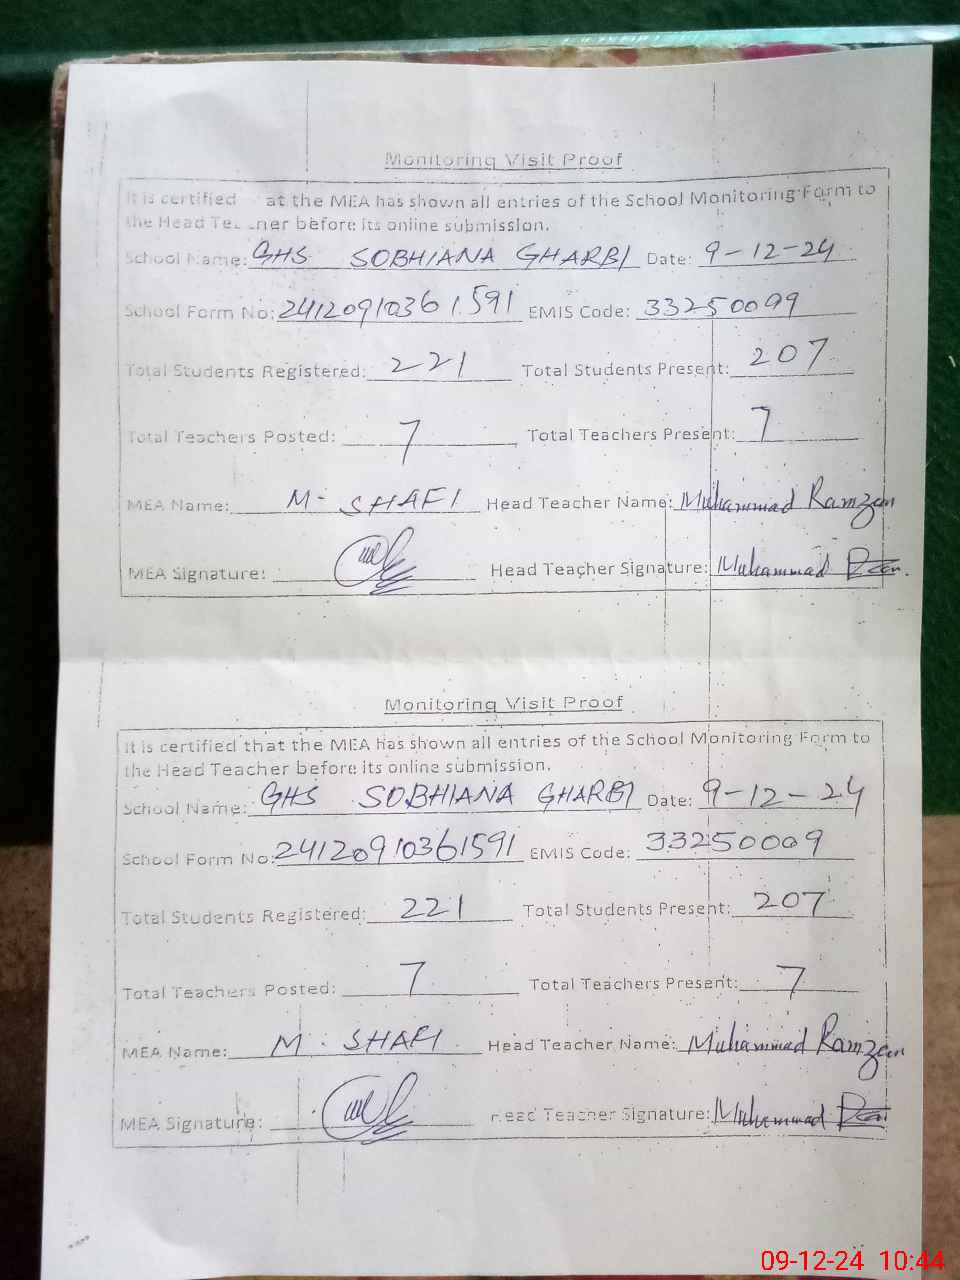 Monitoring Visit Proof
It is certified at the MEA has shown all entries of the School Monitoring Form to
the Head before its online submission.
School Name: GHS SOBHIANA GHARBI Date: 9-12-24
School Form No: 24120910361591 EMIS Code: 33250099
Total Students Registered: 221 Total Students Present: 207
Total Teachers Posted: 7 Total Teachers Present: 7
MEA Name: M. SHAFI Head Teacher Name: Muhammad Ramzan
MEA Signature: Head Teacher Signature: Muhammad
Monitoring Visit Proof
It is certified that the MEA has shown all entries of the School Monitoring Form to
the Head Teacher before its online submission.
School Name: GHS SOBHIANA GHARBI Date: 9-12-24
School Form No: 24120910361591 EMIS Code: 33250009
Total Students Registered: 221 Total Students Present: 207
Total Teachers Posted: 7 Total Teachers Present: 7
MEA Name: M. SHAFI Head Teacher Name: Muhammad Ramzan
MEA Signature: Head Teacher Signature: Muhammad
09-12-24 10:44